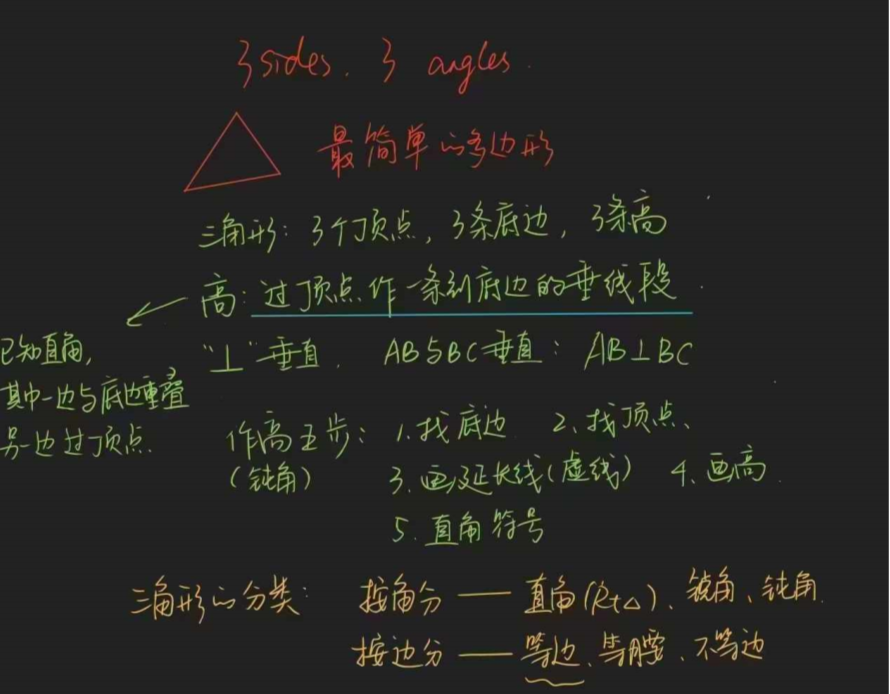 3 sides. 3 angles.
最简单的多边形
三角形: 3个顶点, 3条底边, 3条高
高: 过顶点作一条到底边的垂线段.
已知直角,
其中一边与底边重叠
另一边过顶点.
"⊥" 垂直. AB与BC垂直: AB⊥BC
作高五步: 1.找底边 2.找顶点、
(钝角) 3.画延长线(虚线) 4.画高
5.直角符号
三角形的分类: 按角分 — 直角(Rt△)、锐角、钝角.
按边分 — 等边、等腰、不等边